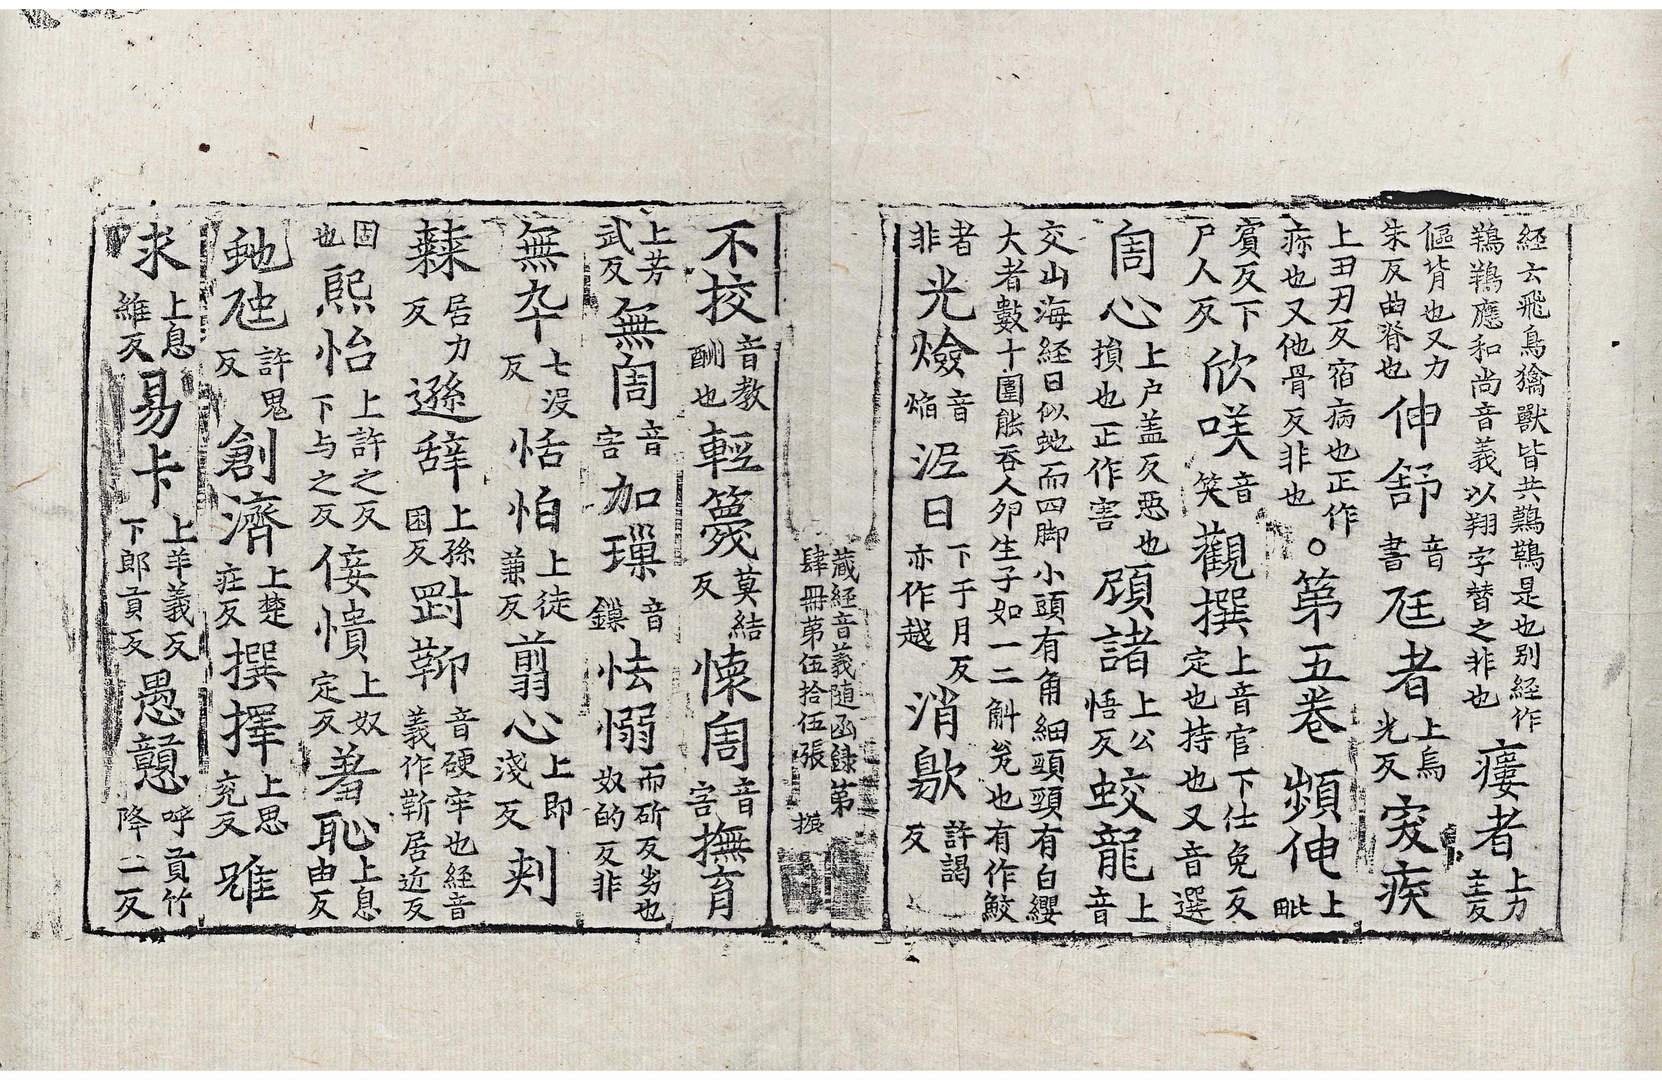 経云飛鳥獝獸皆共是也别経作應和尚音義以翔字替之非也瘻者上力主反
傴背也又力朱反曲脊也伸舒音書尫者上烏光反疾
上丑刃反宿病也正作疢也又他骨反非也○第五卷頻伸上毗
賔反下尸人反欣唉音笑觀撰上音官下仕免反定也持也又音選
周心上户盖反惡也損也正作害頋諸上公悟反蛟龍上音
交山海経曰似虵而四脚小頭有角細頸頸有白纓大者數十圍䏻吞人夘生子如一二斛瓮也有作鮫
者非光燄音焰曰下于月反亦作越消歇許謁反
藏経音義随函録第肆冊第伍拾伍張
不挍音教酬也輕篾莫結反懷周音害撫育
上芳武反無周音害加環音鏁怯愵而斫反劣也奴的反非
無卒七没反恬怕上徒蒹反翦心上即淺反刾
棘居力反遜辞上孫困反罸靳音硬牢也経音義作靳居近反
固也熈怡上許之反下与之反侫憒上奴定反羞恥上息由反
虵虺許鬼反創濟上楚疰反撰擇上思兖反雖
求上息維反易卡上羊義反下郎貢反愚戇呼貢竹降二反